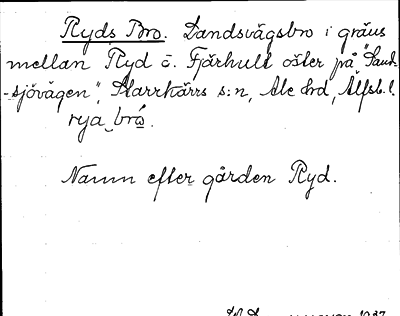 Ryds Bro. Landsvägsbro i gräns
mellan Ryd o. Fjärhult öster på "Sank-
-sjövägen", Starrkärrs s:n, Ale hrd, Älfsb. l.
rya bró.
Namn efter gården Ryd.
1937